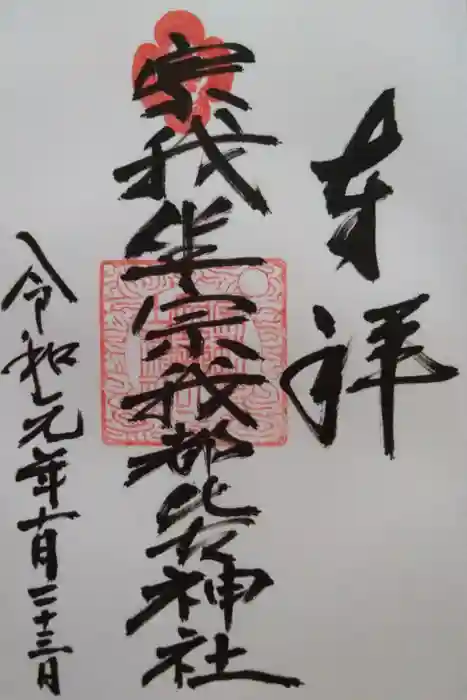 奉拝
宗我坐宗我都比古神社
令和元年十月二十三日